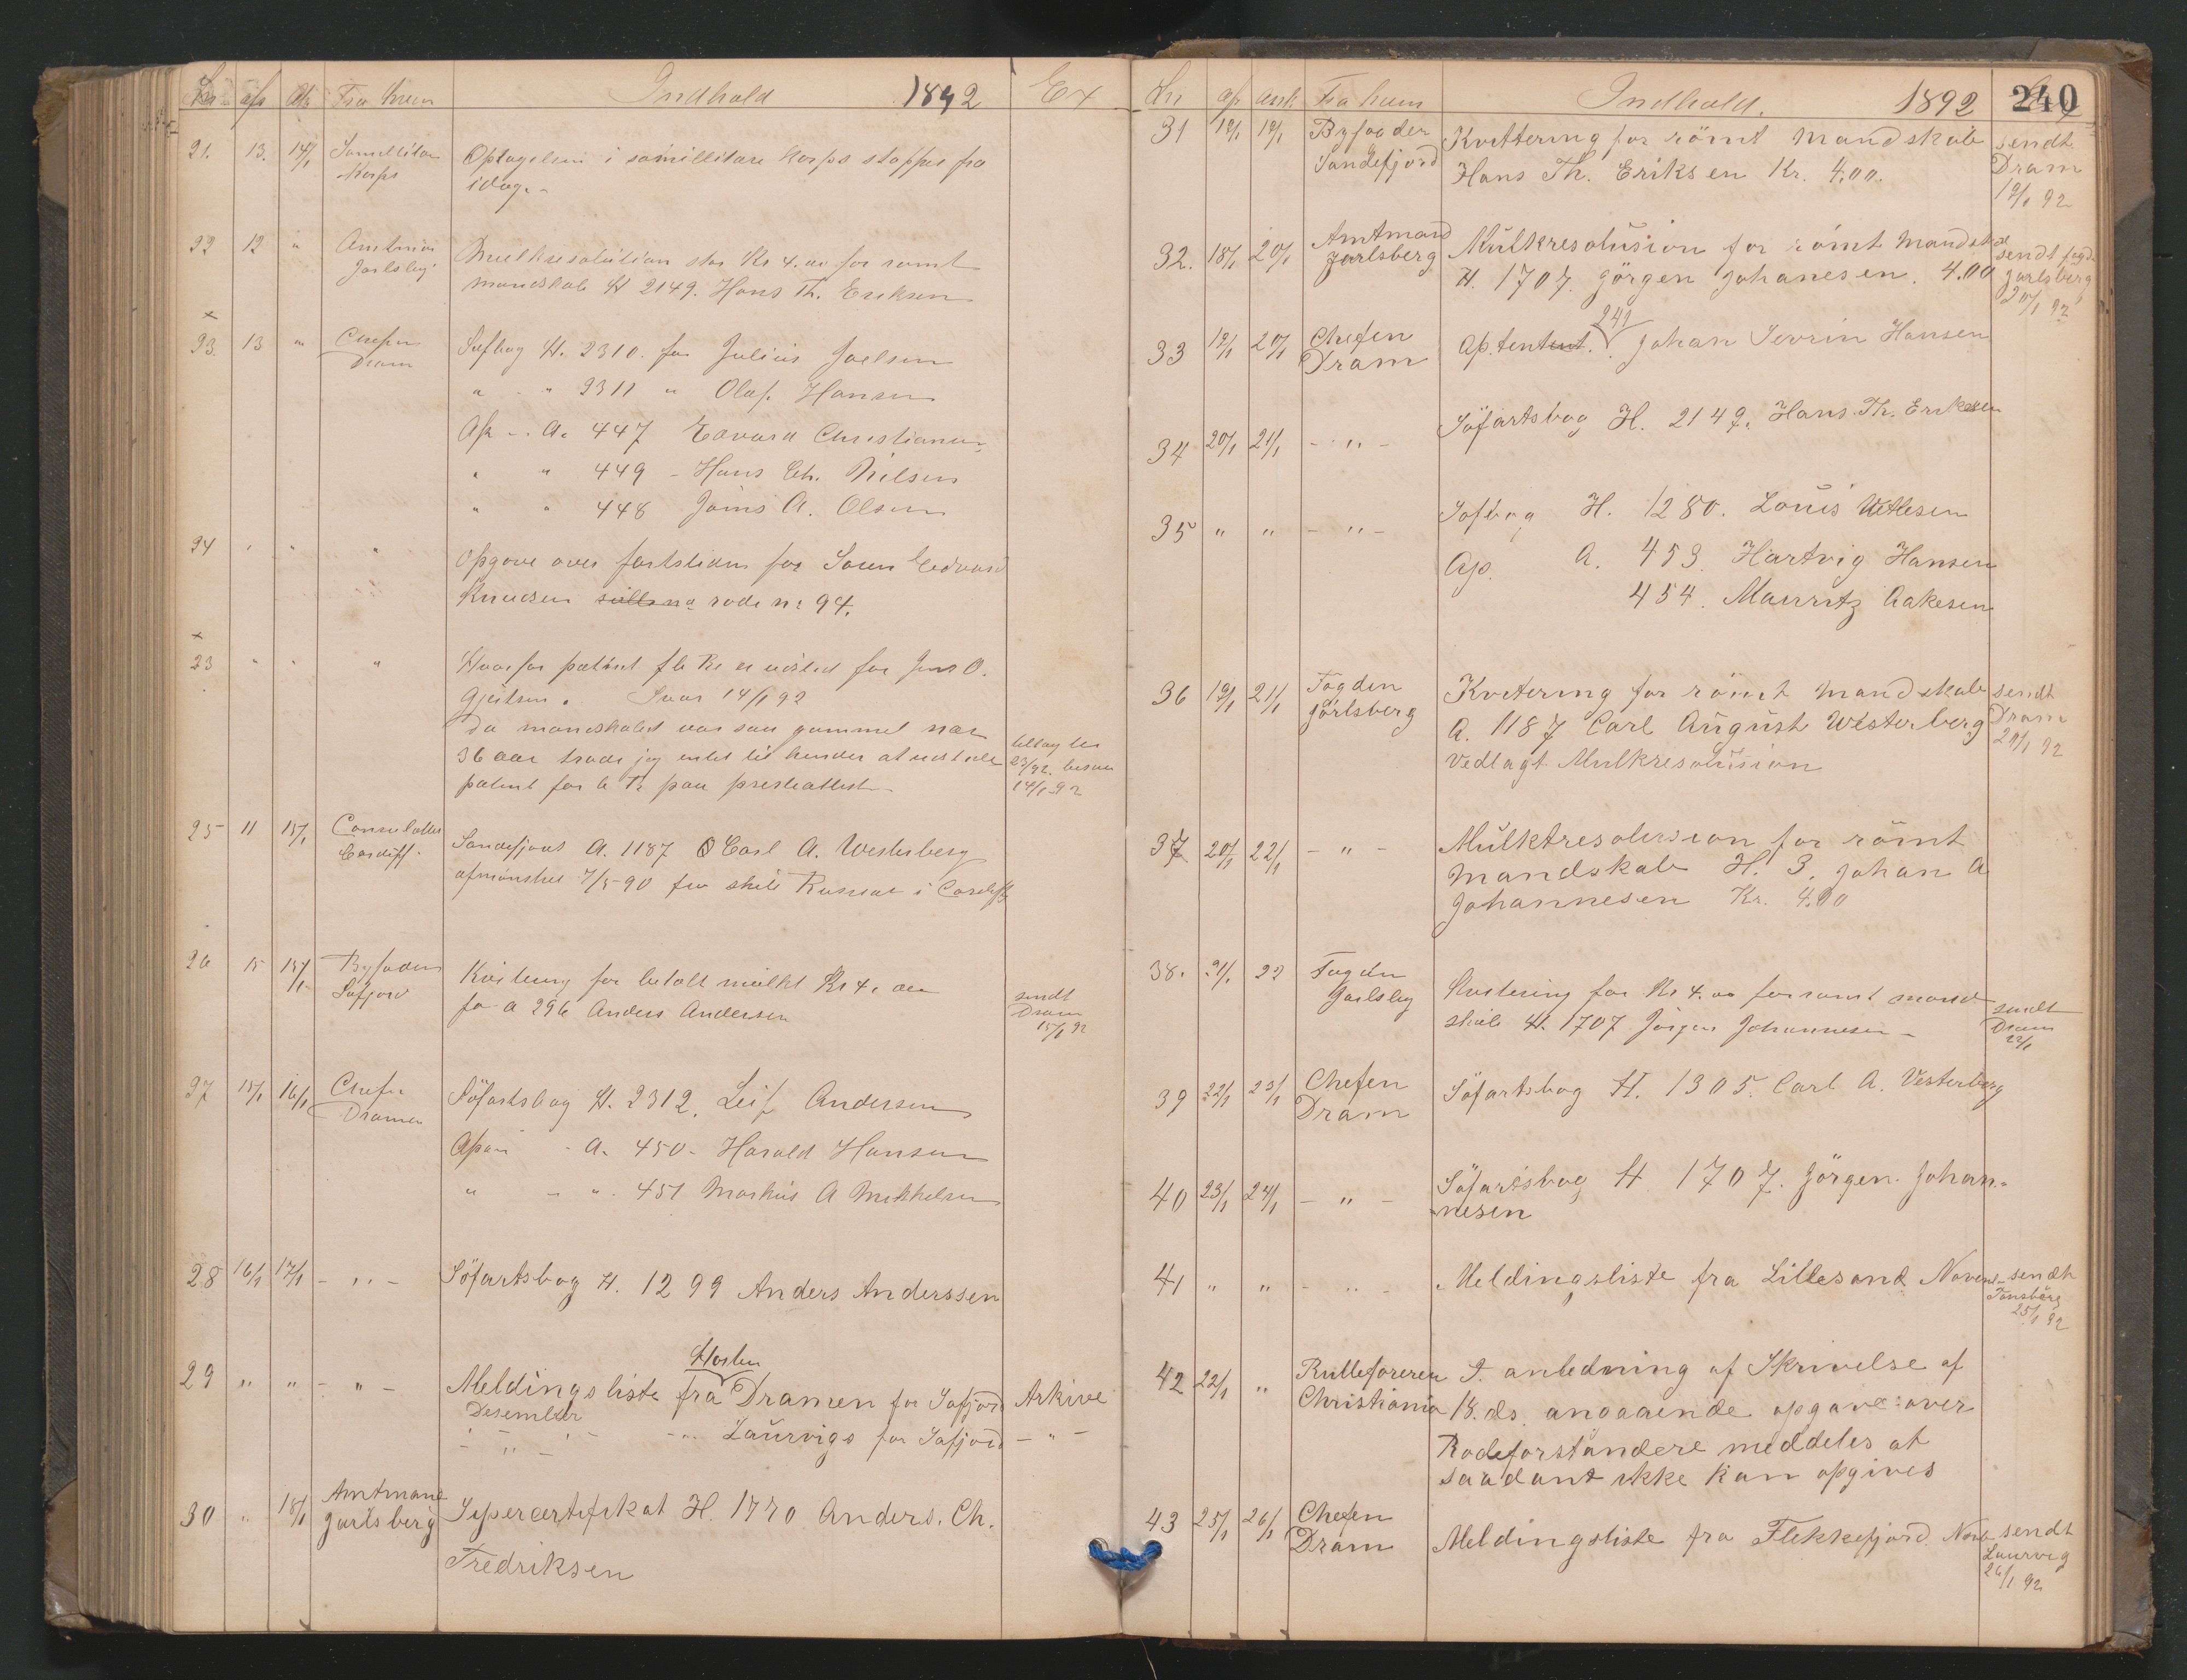 Indhold 1892 Ex
21. 13. 14/1 Somillitær Korps Optagelsen i somillitære Korps stoppes fra
idag.
22 12 " Amtman Jarlsberg Mulktresolution stor Kr 4.00 for rømt
mandskab H 2149. Hans Th. Eriksen
23. 13 " Chefen Dram Søfbog H. 2310. for Julius Joelsen
" " 2311 " Olaf. Hansen
A. 447 Edvard Christiansen
" " 449 - Hans Chr. Nilsen
" " 448 A. Olsen
24 " " " Opgave over fartstiden for Edvard
Knudsen rode nr 94.
23 " " " Hvorfor patent er udsted for Jens O.
Svar 14/1 92
Da mandskabet var saa gammel
36 aar jeg at udstede
patent for
14/1 92
25 11 15/1 Consulatet Cardiff. Sandefjords A. 1187 Carl A. Westerberg
afmønstret 7/5-90 fra skib i Cardiff
26 15 15/1 Byfoden Safjord Kvitering for betalt mulkt Kr 4.00
for A 296 Anders Andersen
sendt
Dram
15/1 92
27 15/1 16/1 Chefen Dramen Söfartsbog H. 2312. Leif Andersen
A. 450 - Harald Hansen
" - ". 451 Markus A Mikkelsen
28 16/1 17/1 - " - Söfartsbog H. 1299 Anders Anderssen
Horten
29 " " - " - Meldingsliste fra Dramen for Safjord Arkive
Desember
- " - Laurvigs for Safjord - " -
30 " 18/1 Amtmand Jarlsberg H. 1770 Anders. Ch.
Fredriksen
Ln Af Ank Fra hvem Indhold. 1892 240
31 19/1 19/1 Byfogden Sandefjord Kvittering for römt Mandskab
Hans Th. Eriksen Kr. 4.00.
sendt
Dram
19/1 92
32. 18/1 20/1 Amtmand Jarlsberg Mulkresolusion for römt Mandskab
H. 1707. Jörgen Johanesen. 4.00
sendt fogd.
Jarlsberg
20/1 92
241
33 19/1 20/1 Chefen Dram Johan Sevrin Hansen
34 20/1 21/1 - " - Söfartsbog H. 2149. Hans. Th. Eriksen
35 " " - " - Sofbog H. 1280. Louis Vetlesen
Ap. A. 453. Hartvig Hansen
454. Mauritz Aakesen
36 19/1 21/1 Fogden Jarlsberg Kvitering for römt Mandskab
A. 1187 Carl August Westerberg
Vedlagt Mulkresolusion
sendt
Dram
21/1 92
37 20/1 22/1 - " - Mulktresolusion for römt
Mandskab H. 3. Johan A
Johannesen Kr. 4.00
38. 21/1 22 Fogden Jarlsberg Kvitering for Kr 4.00 for rømt mand
skab H. 1707 Jörgen Johannesen -
sendt
Dram
22/1
39 22/1 23/1 Chefen Dram Söfartsbog H. 1305. Carl A. Vesterberg
40 23/1 24/1 - " - Söfartsbog H 1707. Jörgen. Johan-
nesen
41 " " - " - Meldingsliste fra Lillesand Novemb
sendt
Tönsberg
25/1 92
42 22/1 " Rulleföreren Christiania I. anledning af Skrivelse af
18. ds. angaaende opgave over
Rodeforstandere meddeles at
saadant ikke kan opgives
43 25/1 26/1 Chefen Dram Meldingsliste fra Flekkefjord Novb
sendt
Laurvig
26/1 92